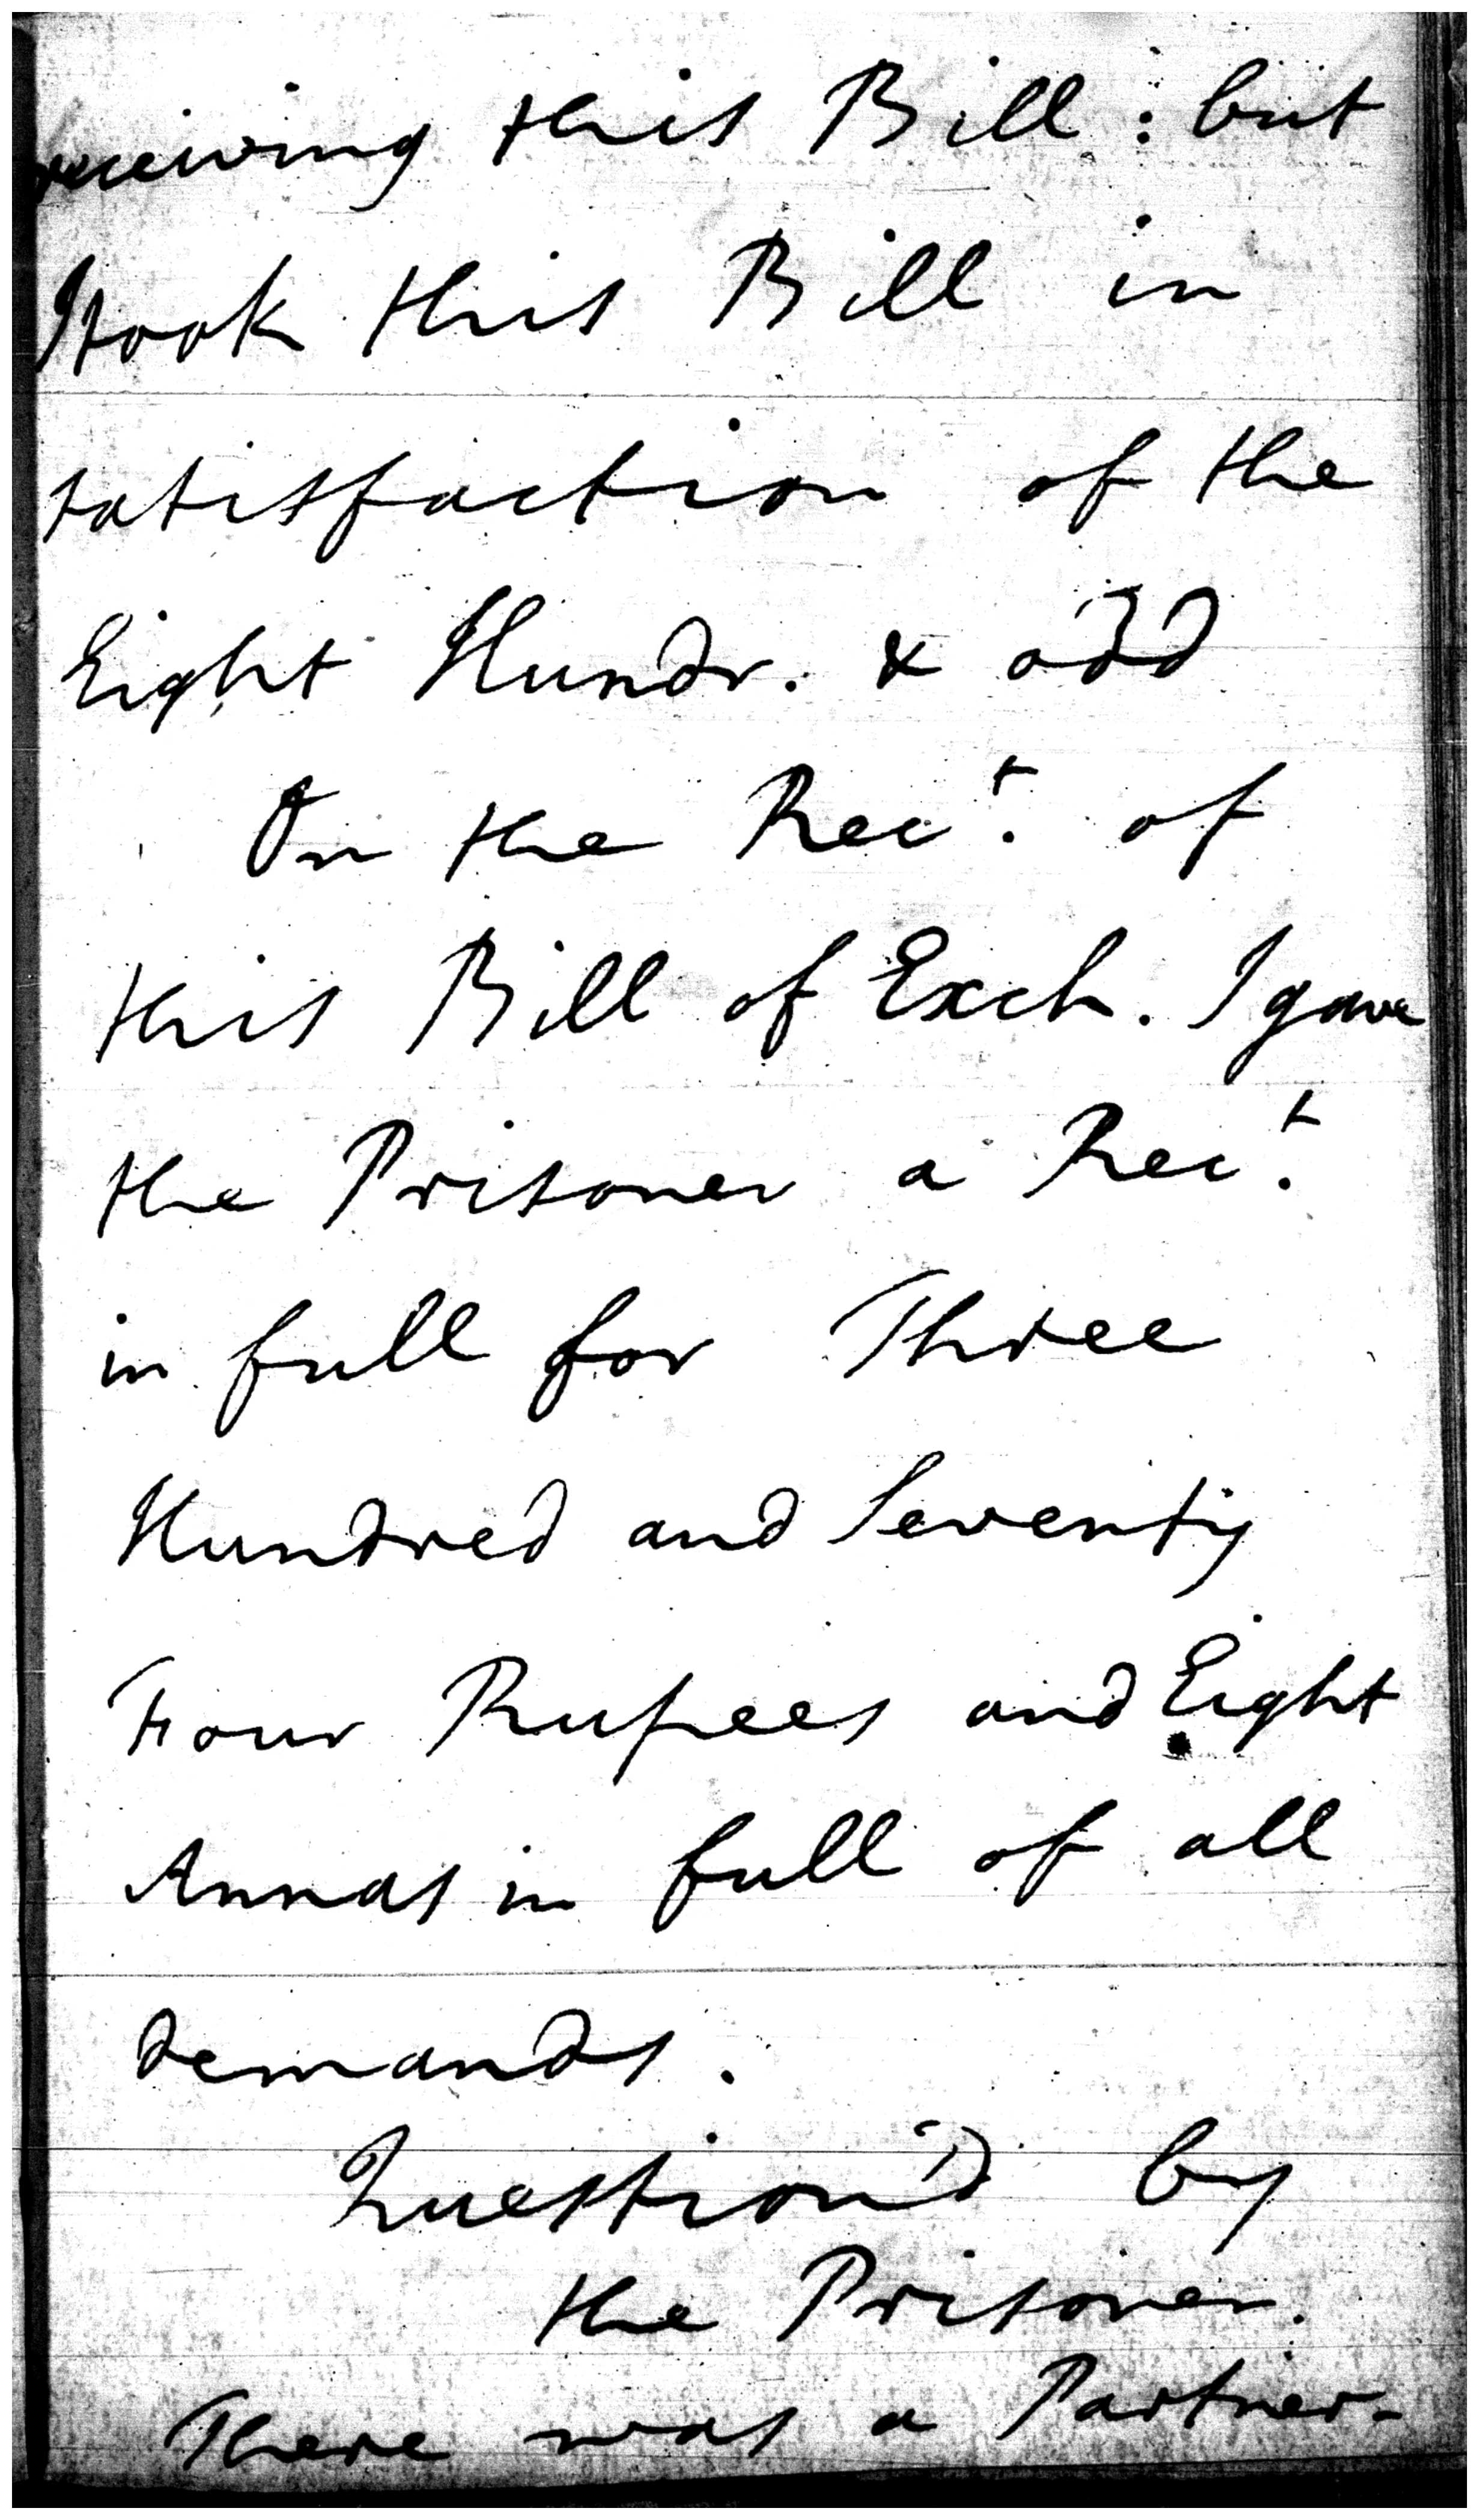 receiving this Bill : but
I took this Bill in
satisfaction of the
Eight Hundr. & odd
On the Rec.t of
this Bill of Exch. I gave
the Prisoner a Rec.t
in full for Three
Hundred and Seventy
Four Rupees and Eight
Annas in full of all
demands.
Question'd by
the Prisoner.
There was a Partner-